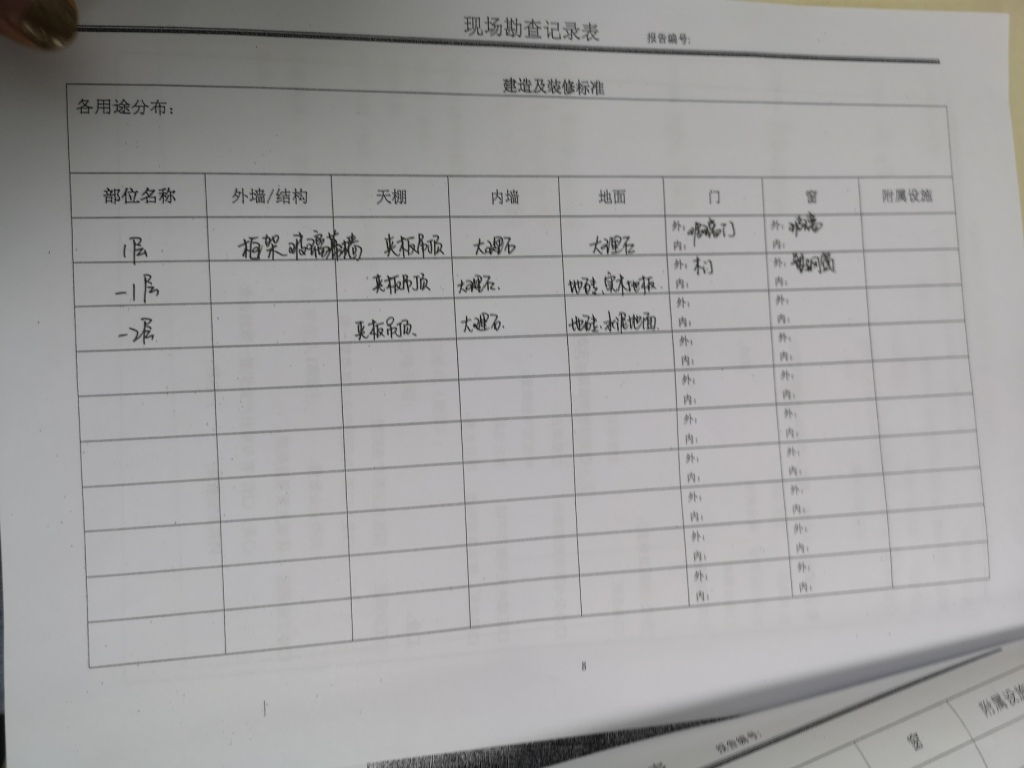 现场勘查记录表 报告编号:
建造及装修标准
各用途分布:
部位名称 外墙/结构 天棚 内墙 地面 门 窗 附属设施
1层 框架玻璃幕墙 夹板吊顶 大理石 大理石 外:玻璃门 外:玻璃
内: 内:
-1层 夹板吊顶 大理石. 地砖.实木地板 外:木门 外:
内: 内:
-2层 夹板吊顶. 大理石. 地砖.水泥地面. 外: 外:
内: 内:
外: 外:
内: 内:
外: 外:
内: 内:
外: 外:
内: 内:
外: 外:
内: 内:
外: 外:
内: 内:
外: 外:
内: 内:
外: 外:
内: 内:
8
报告编号:
窗 附属设施